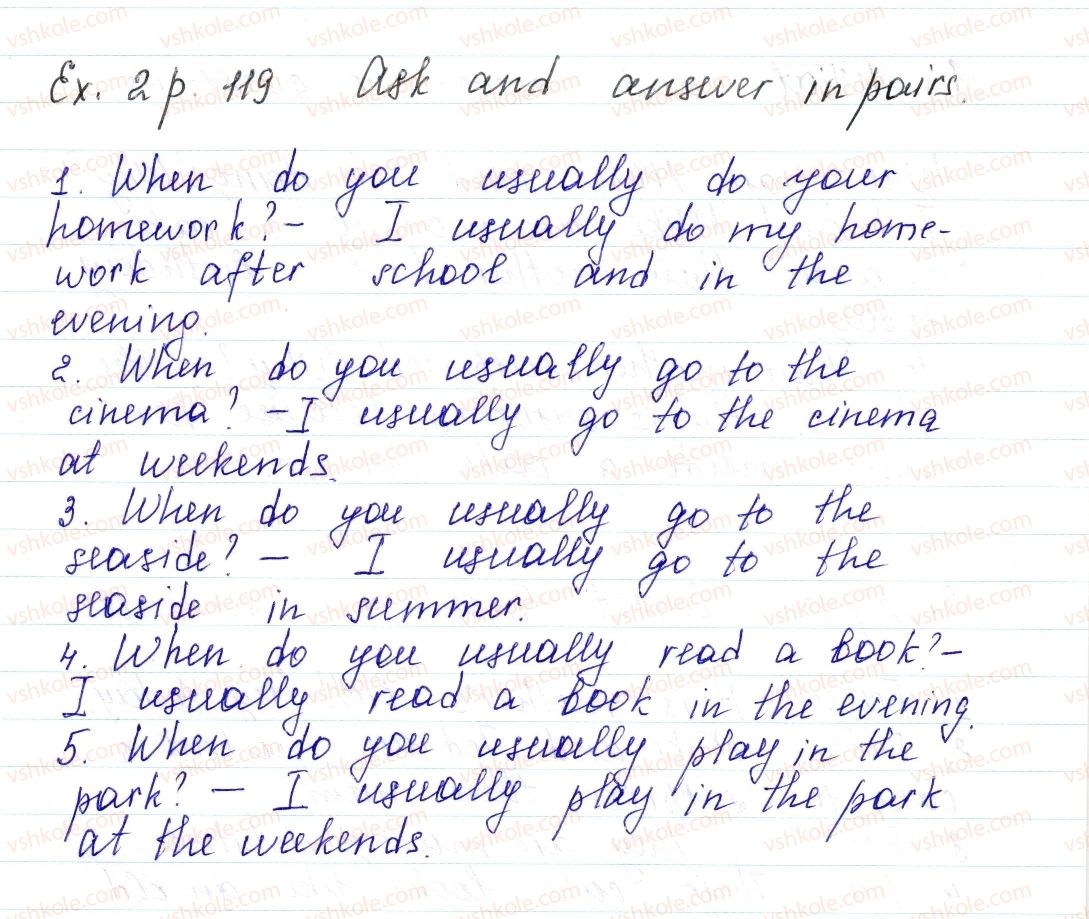 Ex. 2 p. 119 Ask and answer in pairs.
1. When do you usually do your
homework? – I usually do my home-
work after school and in the
evening.
2. When do you usually go to the
cinema? – I usually go to the cinema
at weekends.
3. When do you usually go to the
seaside? – I usually go to the
seaside in summer.
4. When do you usually read a book? –
I usually read a book in the evening.
5. When do you usually play in the
park? – I usually play in the park
at the weekends.